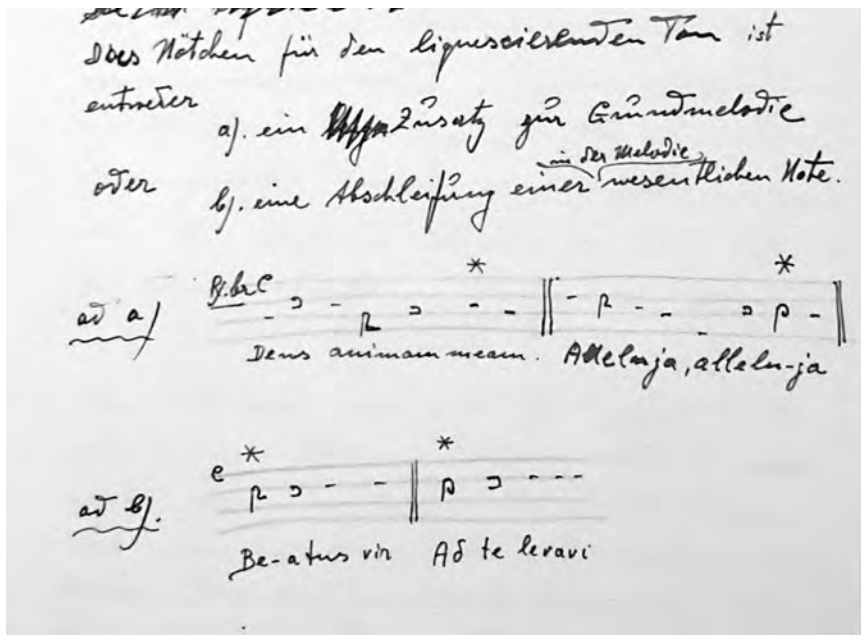 Das Nötchen für den liquescierenden Ton ist
entweder
a). ein Zusatz zur Grundmelodie
oder
in der Melodie
b). eine Abschleifung einer wesentlichen Note.
*
*
ad a)
C
Deus animam meam. Alleluja, allelu-ja
*
*
C
ad b).
Be-atus vir Ad te levavi